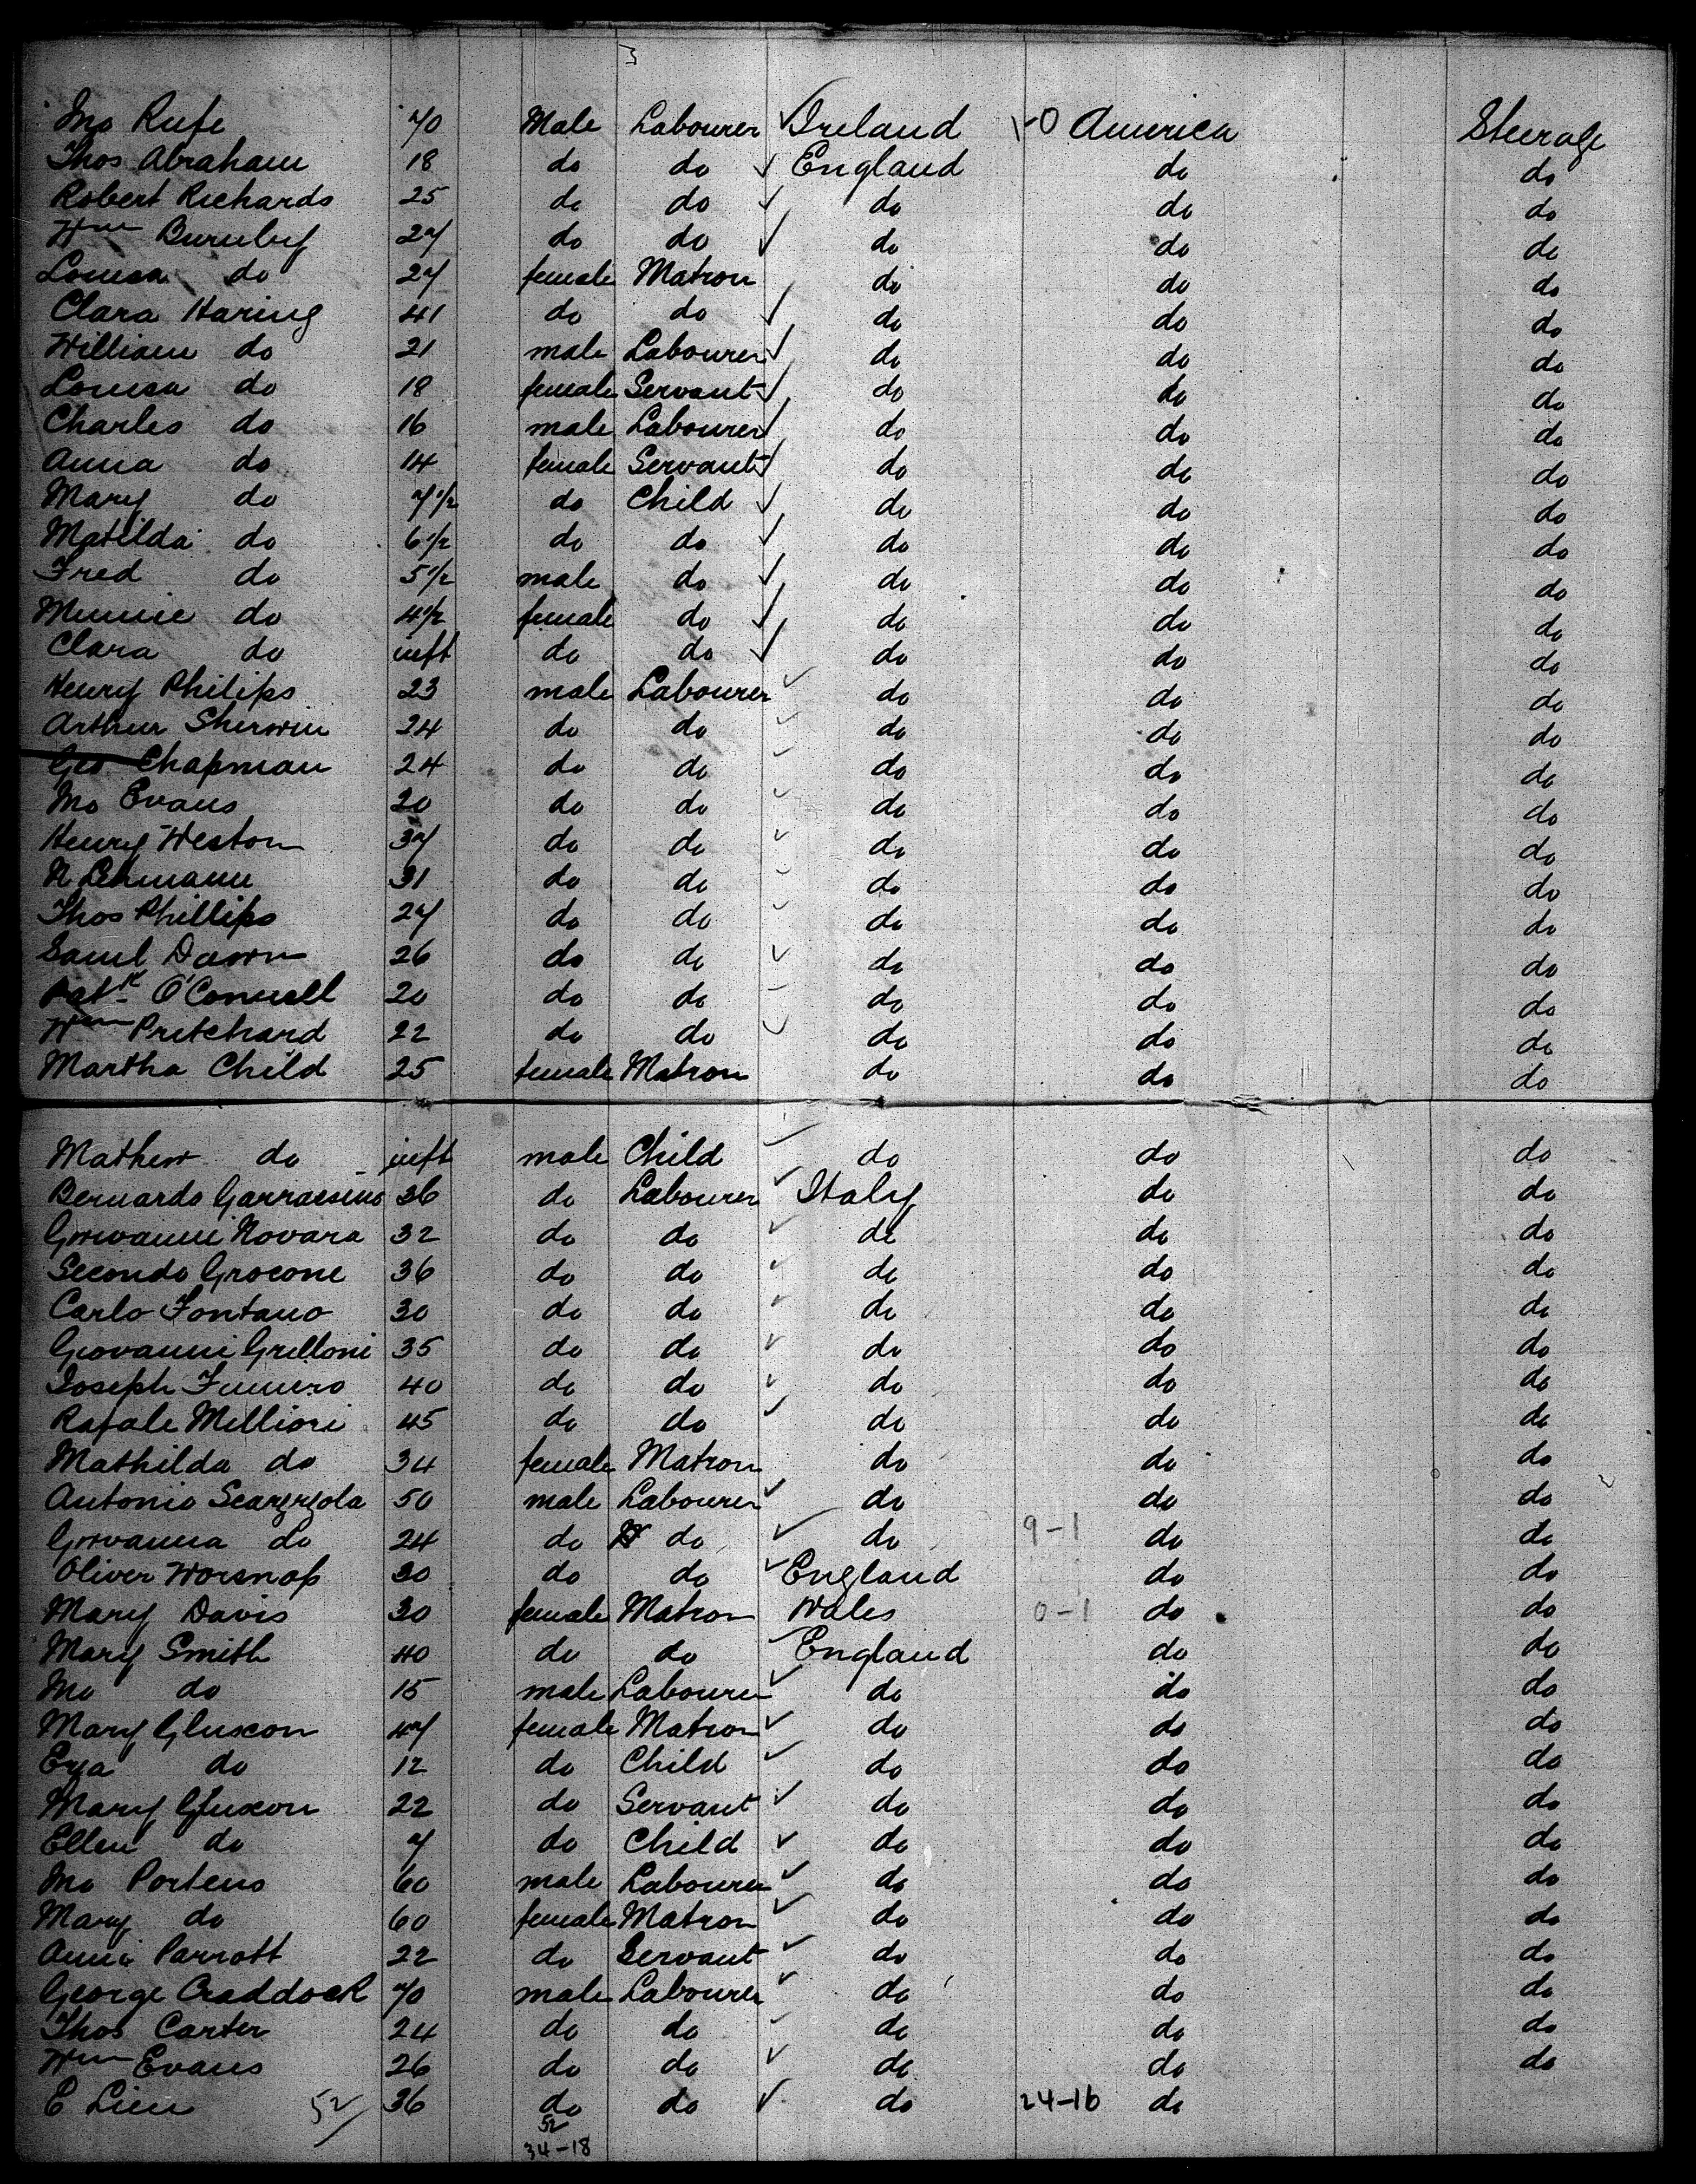 3
Jno Rufe 70 Male Labourer Ireland -0 America Steerage
Thos Abraham 18 do do England do do
Robert Richards 25 do do do do do
Wm Burnley 27 do do do do do
Louisa do 27 female Matron do do do
Clara Haring 41 do do do do do
William do 21 male Labourer do do do
Louisa do 18 female Servant do do do
Charles do 16 male Labourer do do do
Anna do 14 female Servant do do do
Mary do 7 1/2 do Child do do do
Matilda do 6 1/2 do do do do do
Fred do 5 1/2 male do do do do
Minnie do 4 1/2 female do do do do
Clara do inft do do do do do
Henry Philips 23 male Labourer do do do
Arthur Sherwin 24 do do do do do
Geo Chapman 24 do do do do do
Jno Evans 20 do do do do do
Henry Weston 37 do do do do do
N Lehmann 31 do do do do do
Thos Phillips 27 do do do do do
Saml Dawn 26 do do do do do
Patk O'Connell 20 do do do do do
Wm Pritchard 22 do do do do do
Martha Child 25 female Matron do do do
Mathew do inft male Child do do do
Bernardo Garrassino 36 do Labourer Italy do do
Giovanni Novara 32 do do do do do
Secondo Grocone 36 do do do do do
Carlo Fontano 30 do do do do do
Giovanni Grelloni 35 do do do do do
Joseph Fumero 40 do do do do do
Rafale Milliori 45 do do do do do
Mathilda do 34 female Matron do do do
Antonio Scarzzola 50 male Labourer do do do
Giovanna do 24 do do do 9-1 do do
Oliver Worsnop 30 do do England do do
Mary Davis 30 female Matron Wales 0-1 do do
Mary Smith 40 do do England do do
Jno do 15 male Labourer do do do
Mary Gluxon 47 female Matron do do do
Eva do 12 do Child do do do
Mary Gluxon 22 do Servant do do do
Ellen do 7 do Child do do do
Jno Porteus 60 male Labourer do do do
Mary do 60 female Matron do do do
Annie Parrott 22 do Servant do do do
George Craddock 70 male Labourer do do do
Thos Carter 24 do do do do do
Wm Evans 26 do do do do do
E Lieu 52 36 do do do 24-16 do
52
34-18